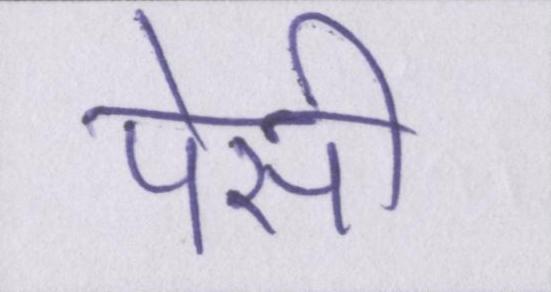 पेसी